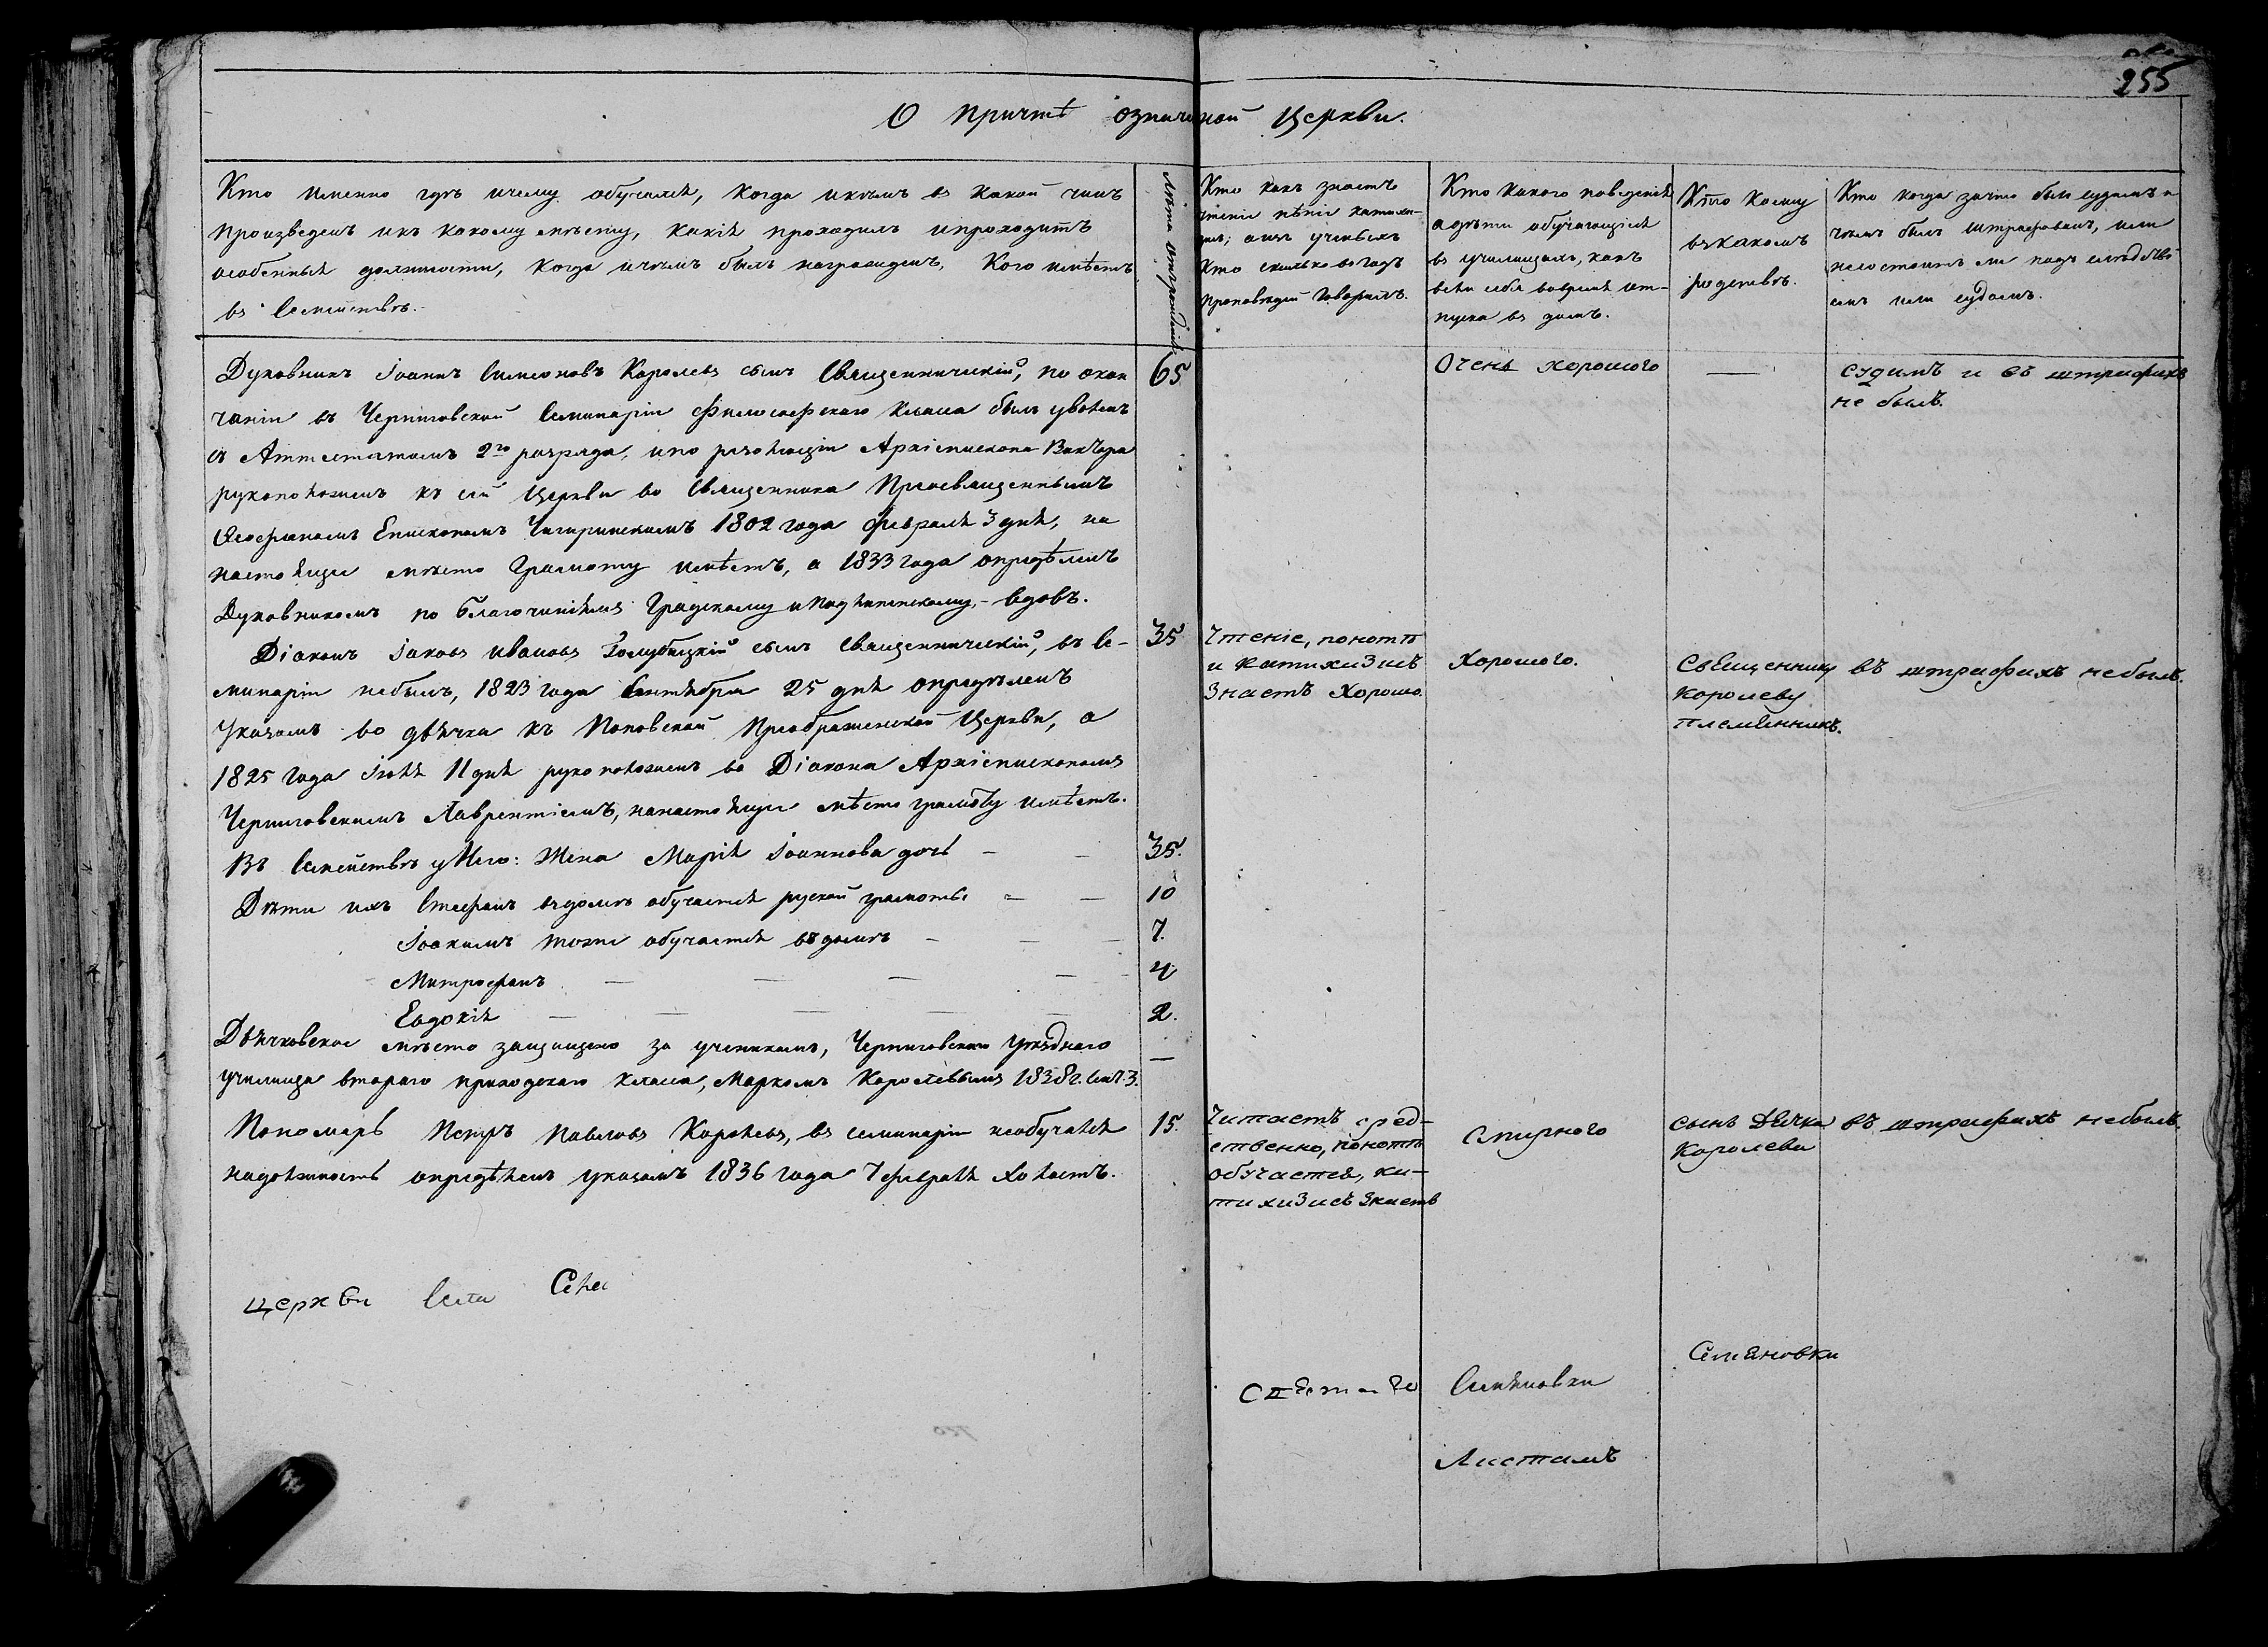 255
О причтѣ означеной Церкви.
Кто именно гдѣ ичему обучался, когда икѣмъ въ какой чинъ
произведенъ икъ какому мѣсту, какія проходилъ ипроходитъ
особенныя должности, когда ичѣмъ былъ награжденъ, Кого имѣетъ
въ Семействѣ.
Лѣта отъ рожденія
Кто какъ знаетъ
чтеніе пѣніе катихи-
зисъ; аизъ ученыхъ
кто сколько вогодъ
проповѣдей говорилъ.
Кто какого поведенія
адѣти обучающіяся
въ училищахъ, какъ
вели себя вовремя от-
пуска въ домъ.
Кто кому
въкакомъ
родствѣ.
Кто когда зачто былъ судимъ и
чѣмъ былъ штрафованъ, или
несостоитъ ли подъ слѣдстві
емъ или судомъ.
Духовникъ Іоаннъ Симеоновъ Королевъ сынъ Священническій, по окон
чаніи въ Черниговской Семинаріи Философскаго класса былъ уволенъ
съ Аттестатомъ 2го розряда, ипо резолюціи Архіепископа Виктора
рукоположенъ къ сей Церкви во Священника Преосвященнымъ
Ѳеофаномъ Епископомъ Чигиринскимъ 1802 года февраля 3 дня, на
настоящее мѣсто Грамоту имѣетъ, а 1833 года опредѣленъ
Духовникомъ по благочиніямъ Градскому и Подлипенскому,- вдовъ.
65
Очень хорошого
—
судимъ и въ штрафахъ
не былъ.
Діаконъ Іаковъ Ивановъ Голубицкій сынъ Священническій, въ Се-
минаріи небылъ, 1823 года Сентября 25 дня опредѣленъ
Указомъ во дьячка къ Поповской Преображенской Церкви, а
1825 года Іюля 11 дня рукоположенъ во Діакона Архіепископомъ
Черниговскимъ Лаврентіемъ, нанастоящее мѣсто грамоту имѣетъ.
35
Чтеніе, понотѣ
и катихизисъ
знаетъ хорошо.
Хорошого.
Священнику
Королеву
племянникъ.
въ штрафахъ небылъ.
Въ Семействѣ у Него: Жена Марія Іоаннова дочь — — 35.
Дѣти ихъ Стефанъ въдомѣ обучается руской грамоты — — 10
Іоакимъ тоже обучается въдомѣ — — — 7.
Митрофанъ — — — — 4
Евдокія — — — — — 2.
Дьячковское мѣсто защищено за ученикомъ, Черниговскаго уѣзднаго
училища втораго приходскаго класса, Маркомъ Королевымъ 1838 г. Сент. 3. —
Пономарь Петръ Павловъ Королевъ, въ семинаріи необучался
надолжность опредѣленъ указомъ 1836 года 7 февраля Холостъ.
15.
Читаетъ сред-
ственно, понотѣ
обучается, ка-
тихизисъ знаетъ
Смирного
сынъ Дьячка
Королева
въ штрафахъ небылъ.
Церкви Села Села
Семяновки
Семяновки
Листамъ